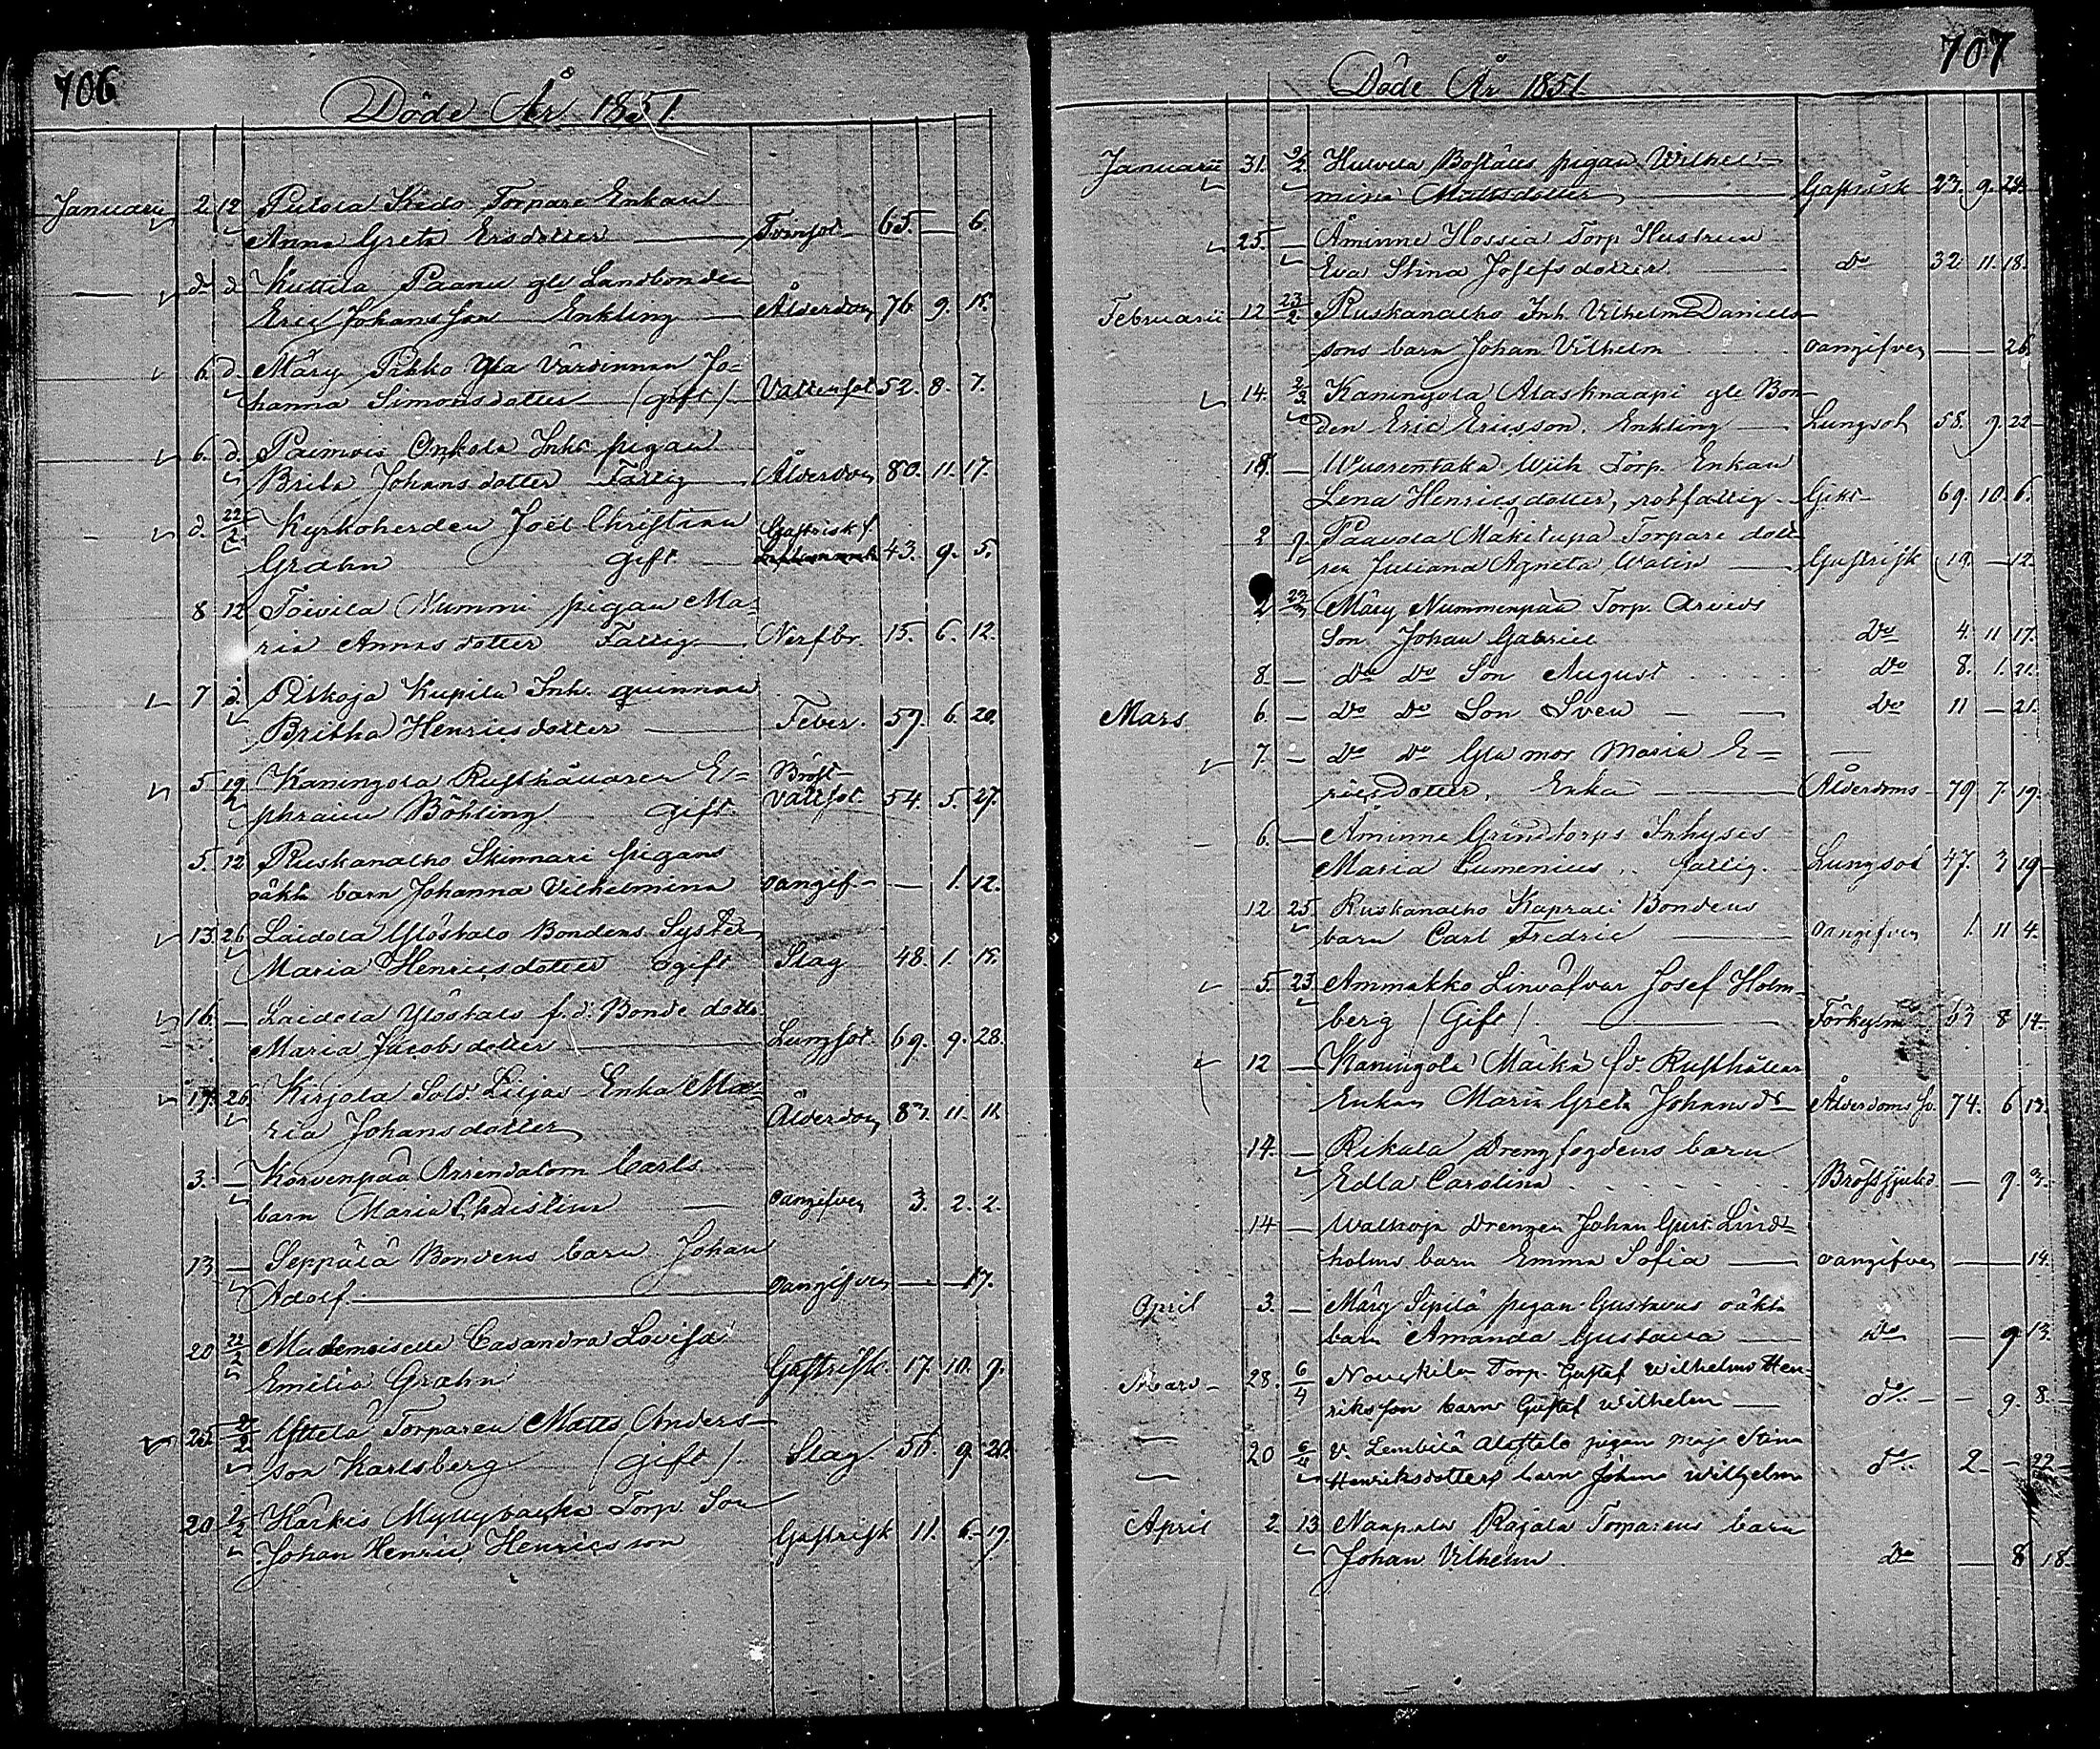 706
Döde År 1851.
Januarii 2. 12 Pulola Kedo Torpare Enkan
Anna Greta Ersdotter Tvinsot 65. — 6.
d. d. Kuttila Paanu gle Landbonden
Eric Johansson Enkling Ålderdom 76. 9. 15.
6. d. Märy Pakko gla Värdinnan Jo-
hanna Simonsdotter (gift) Vattusot 52. 8. 7.
6. d. Paimois Onkola Inhs pigan
Brita Johansdotter Fattig Ålderdom 80. 11. 17.
d. 22/2 Kyrkoherden Joël Christian Gastrisk f.
Grahn gift. 43. 9. 5.
8 12 Toivila Nummi pigan Ma-
ria Annasdotter Fattig Nerffbr. 15. 6. 12.
7 d. Pitkoja Kupila Inh. quinnan
Britha Henricsdotter Feber. 59. 6. 20.
5 19 Kaningola Rusthållaren E- Bröst-
phraim Böhling gift. Vattsot. 54. 5. 27.
5. 12 Ruskanalho Skinnari pigans
oäkta barn Johanna Vilhelmina oangif. — 1. 12.
13. 26 Laidola Ylöstalo Bondens Syster
Maria Henricsdotter ogift Slag 48. 1. 15.
16. — Laidola Ylöstalo f.d. Bonde dottr.
Maria Jacobsdotter Lungsot. 69. 9. 28.
17. 26 Kirjola Sold. Liljas Enka Ma-
ria Johansdotter Ålderdom 87. 11. 11.
3. — Korvenpää Arrendatorn Carls
barn Maria Christina oangifven 3. 2. 2.
13 — Seppälä Bondens barn Johan
Adolf. oangifven — — 17.
20 22/2 Mademoiselle Casandra Lovisa
Emilia Grahn Gastrisk. 17. 10. 9.
25. 2/2 Yttelä Torparen Matts Anders-
son Karlsberg (gift). Slag. 51 9. 20.
20 2/2 Karkis Myllybacka Torp. Son
Johan Henric Henricsson Gastrisk 11. 6. 19.
707
Döde År 1851.
Januarii 31. 9/2 Huivila Boställs pigan Wilhel-
mina Mattsdotter Gastrisk 23. 9. 28.
25. — Åminne Hossia Torp. Hustrun
Eva Stina Josefsdotter do 32. 11. 18.
Februarii 12 23/2 Ruskanalho Inh. Vilhelm Daniels-
sons barn Johan Vilhelm oangifven — — 26.
14. 2/3 Kaningola Alasknaapi gle Bon-
den Eric Ericsson. Enkling Lungsot 58. 9. 22
18. — Wuorentaka Wiik Torp. Enkan
Lena Henricsdotter, rotfattig Gikt 69. 10. 6.
2 9 Paavola Mäkitupa Torpare dott-
ren Juliana Agneta Walin Gastrisk 19. — 12.
2 23/3 Märy Nummenpää Torp. Arvids
Son Johan Gabriel Do 4. 11 17.
8. — do do Son August do 8. 1. 21.
Mars 6 — Do Do Son Sven do 11 — 21.
7 — Do Do Gla mor Maria E-
ricsdotter. Enka Ålderdoms 79 7. 19.
6. — Åminne Grindtorps Inhyses
Maria Lumenius, fattig. Lungsot 47. 3 19
12 25. Ruskanalho Kaprali Bondens
barn Carl Fredric oangifven 1. 11 4.
5. 23. Ammakko Linväfvar Josef Holm-
berg (Gift). Förkyln 63 8 14
12 — Kaningola Mäikä f.d. Rusthållar
Enkan Maria Greta Johansdr Ålderdoms so. 74. 6 17.
14. — Rikala Drengfogdens barn
Edla Carolina Bröstsjukd — 9. 3.
14 — Walkoja Drengen Johan Gust. Lind-
holms barn Emma Sofia oangifven — — 14.
April 3. — Märy Sipilä pigan Gustavas oäkta
barn Amanda Gustava do — 9 13.
Mars 28. 6/4 Novikila Torp. Gustaf Wilhelms Hen-
riksson barn Gustaf Wilhelm do — 9. 8.
20 6/4 v. Lembilä Alastalo pigan Maja Stina
Henriksdotters barn Johan Wilhelm do 2. — 22
April 2 13 Naapala Rajala Torparens barn
Johan Vilhelm. do — 8 18.